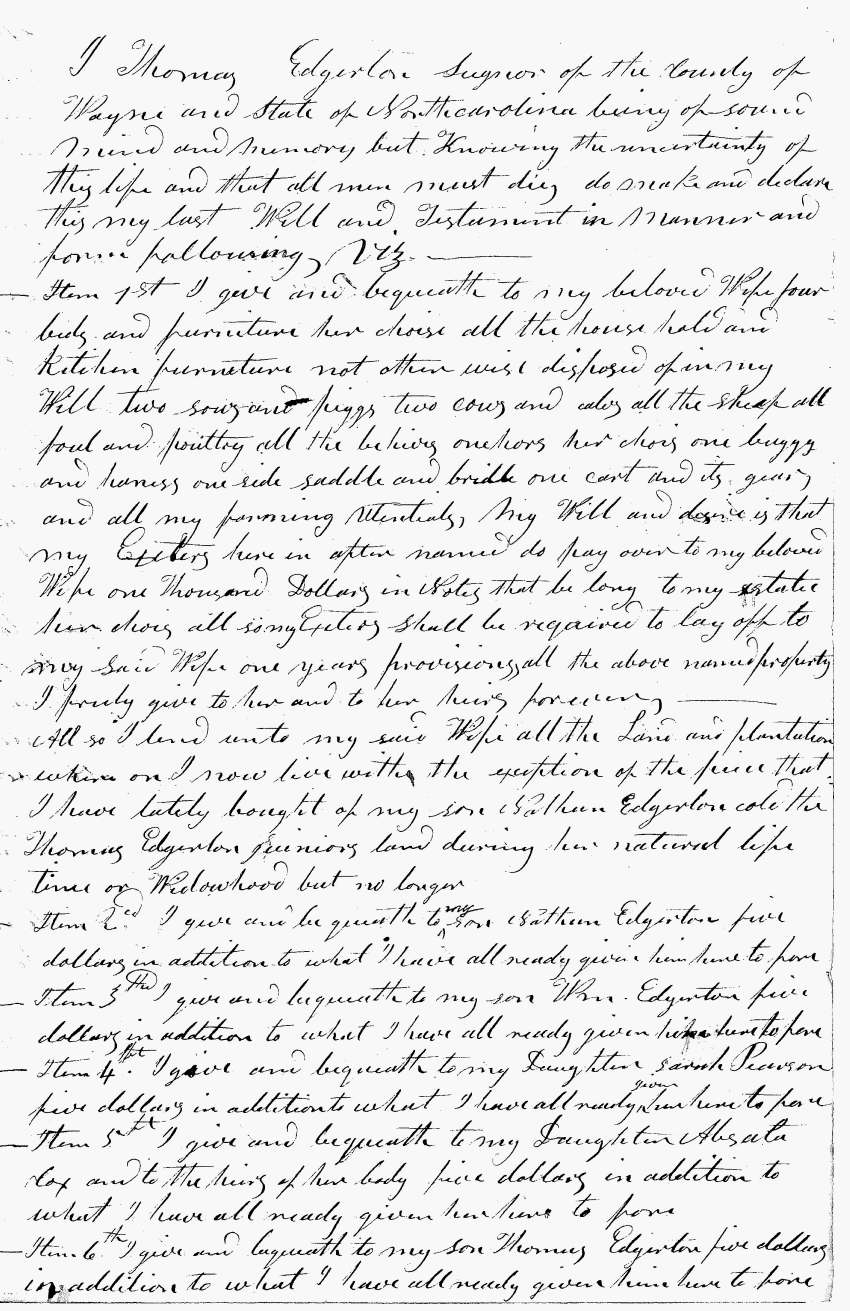 I Thomas Edgerton Sugnor of the County of
Wayne and State of Northcarolina being of sound
mind and memory but Knowing the uncertainty of
this life and that all men must die, do make and declare
this my last Will and Testament in manner and
form following, Viz.
Item 1st I give and bequeath to my beloved Wife four
beds and furneture her choise all the house hold and
Kitchin furneture not other wise disposed of in my
Will two sows and piggs two cows and calvs all the sheep all
foul and poultry all the behives one hors her chois one buggy
and harness one side saddle and bridle one cart and its gear,
and all my farming Utentials, My Will and desire is that
my Exeters here in after named do pay over to my beloved
Wife one Thousand Dollars in Notes that be long to my estate
her chois all so my Exeters shall be reqaired to lay off to
my said Wife one years provisions, all the above named property
I freely give to her and to her heirs forever,
All so I lend unto my said Wife all the Land and plantation
where on I now live with the exeption of the piece that
I have lately bought of my son Nathan Edgerton cold the
Thomas Edgerton juniors land during her natural life
time or Widowhood but no longer
Item 2ed I give and be queath to my son Nathan Edgerton five
dollars in addition to what I have all ready given him here to fore
Item 3thd I give and bequeath to my son Wm. Edgerton five
dollars in addition to what I have all ready given him here to fore
Item 4th. I give and bequeath to my Daughter Sarah Pearson
five dollars in addition to what I have all ready given her here to fore
Item 5th I give and bequeath to my Daughter
Cox and to the heirs of her body five dollars in addition to
what I have all ready given her here to fore
Item 6th I give and bequeath to my son Thomas Edgerton five dollars
in addition to what I have all ready given him here to fore